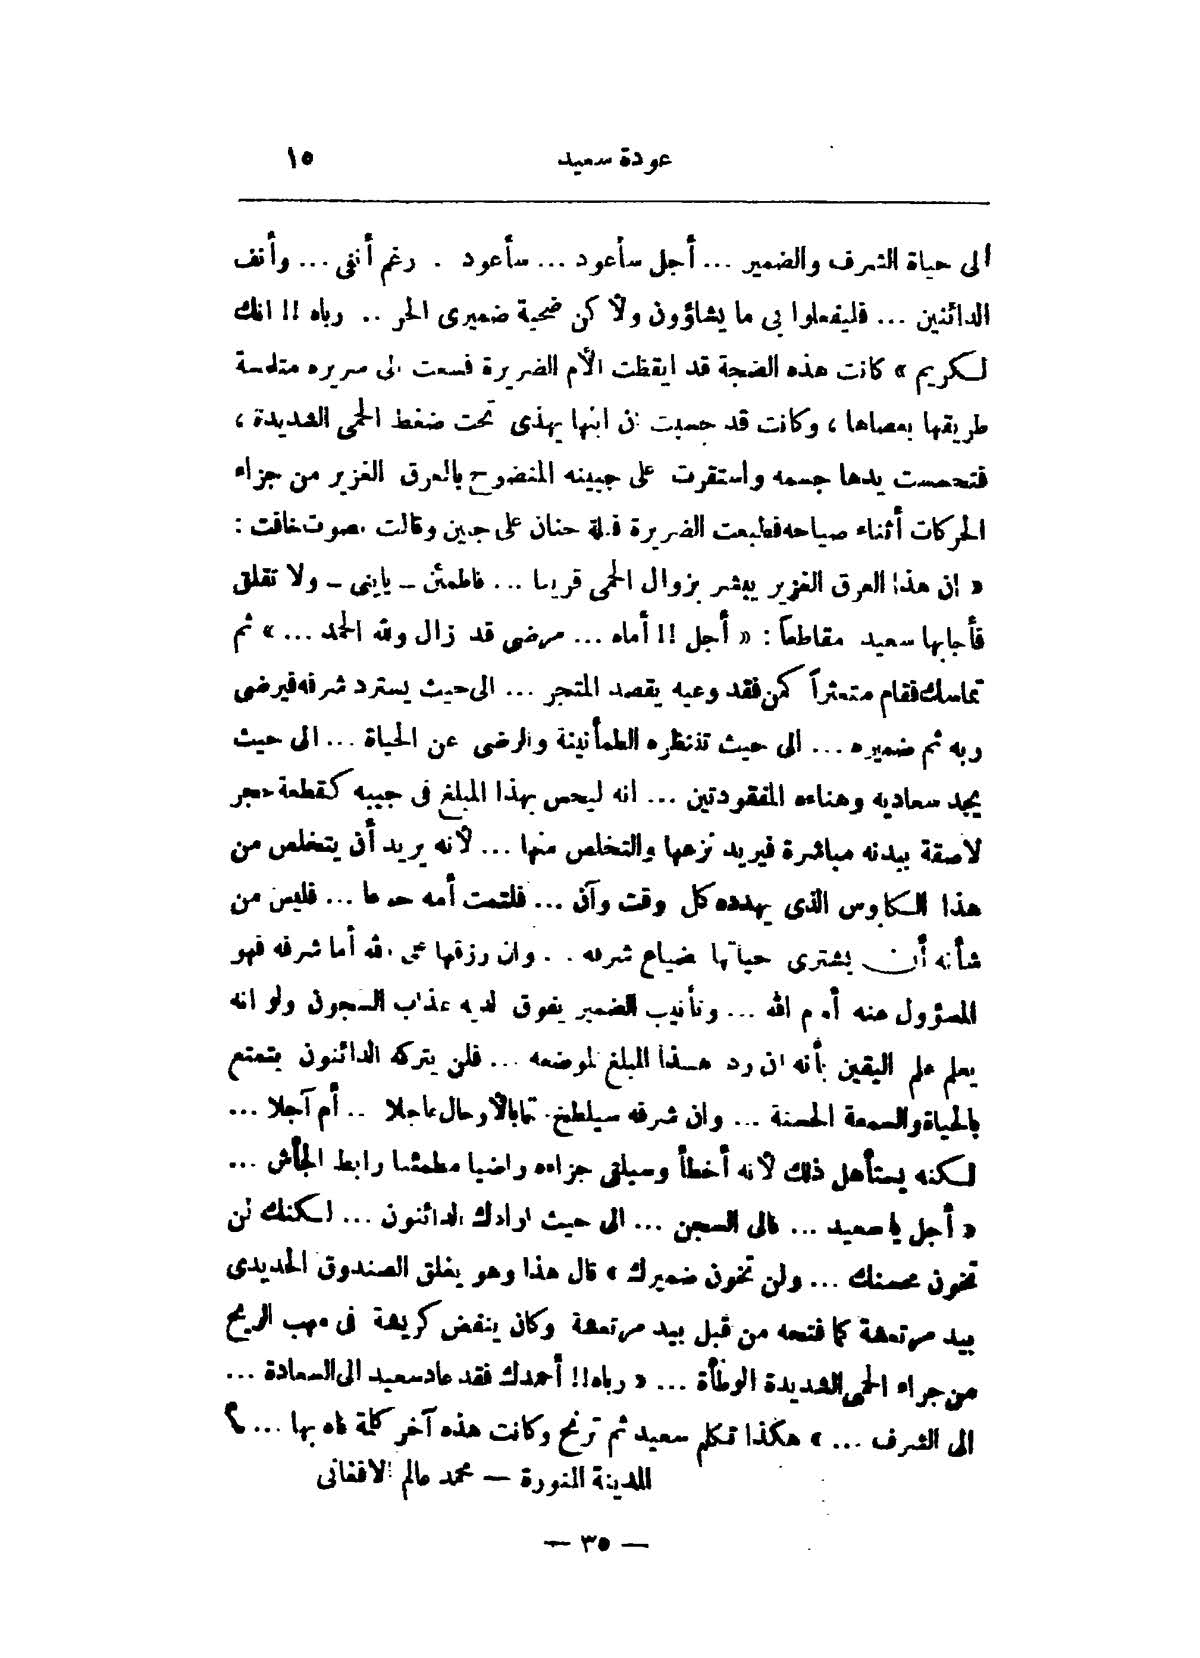 عودة سعيد ١٥
الى حياة الشرف والضمير ... أجل سأعود ... سأعود . رغم أنفى ... وأنف
الدائنين ... فليفعلوا بى ما يشاؤون ولأكن ضحية ضميرى الحر .. رباه !! انك
لكريم » كانت هذه الضجة قد ايقظت الأم الضريرة فسعت الى سريره متلمسة
طريقها بعصاها ، وكانت قد حسبت ان ابنها يهذى تحت ضغط الحمى الشديدة ،
فتحسست يدها جسمه واستقرت على جبينه المنضوح بالعرق الغزير من جزاء
الحركات أثناء صياحه فطبعت الضريرة قبلة حنان على جبين وقالت بصوت خافت :
« ان هذا العرق الغزير يبشر بزوال الحمى قريبا ... فاطمئن - يابنى - ولا تقلق
فأجابها سعيد مقاطعاً : « أجل !! أماه ... مرضى قد زال ولله الحمد ... » ثم
تماسك فقام متعثراً كمن فقد وعيه يقصد المتجر ... الى حيث يسترد شرفه فيرضى
ربه ثم ضميره ... الى حيث تنتظره الطمأنينة والرضى عن الحياة ... الى حيث
يجد سعاديه وهناءه المفقودتين ... انه ليحس بهذا المبلغ فى جيبه كقطعة حجر
لاصقة ببدنه مباشرة فيريد نزعها والتخلص منها ... لأنه يريد أن يتخلص من
هذا الكاوس الذى يهدده كل وقت وآن ... فلتمت أمه جوعا ... فليس من
شأنه أن يشترى حياتها بضياع شرفه .. وان رزقها على الله أما شرفه فهو
المسؤول عنه أمام الله ... وتأنيب الضمير يفوق لديه عذاب السجون ولو انه
يعلم علم اليقين بأنه ان رد هذا المبلغ لموضعه ... فلن يتركه الدائنون يتمتع
بالحياة والسمعة الحسنة ... وان شرفه سيلطخ تما بالأوحال عاجلا .. أم آجلا ...
لكنه يستأهل ذلك لأنه أخطأ وسيلقى جزاءه راضيا مطمئنا رابط الجأش ...
« أجل يا سعيد ... فالى السجن ... الى حيث ارادك الدائنون ... لكنك لن
تخون محسنك ... ولن تخون ضميرك » قال هذا وهو يغلق الصندوق الحديدى
بيد مرتعشة كما فتحه من قبل بيد مرتعشة وكان ينفض كريشة فى مهب الريح
من جراء الحمى الشديدة الوطأة ... « رباه !! أحمدك فقد عاد سعيد الى السعادة ...
الى الشرف ... » هكذا تكلم سعيد ثم ترنح وكانت هذه آخر كلمة فاه بها ... ؟
المدينة المنورة — محمد عالم الافغانى
— ٣٥ —